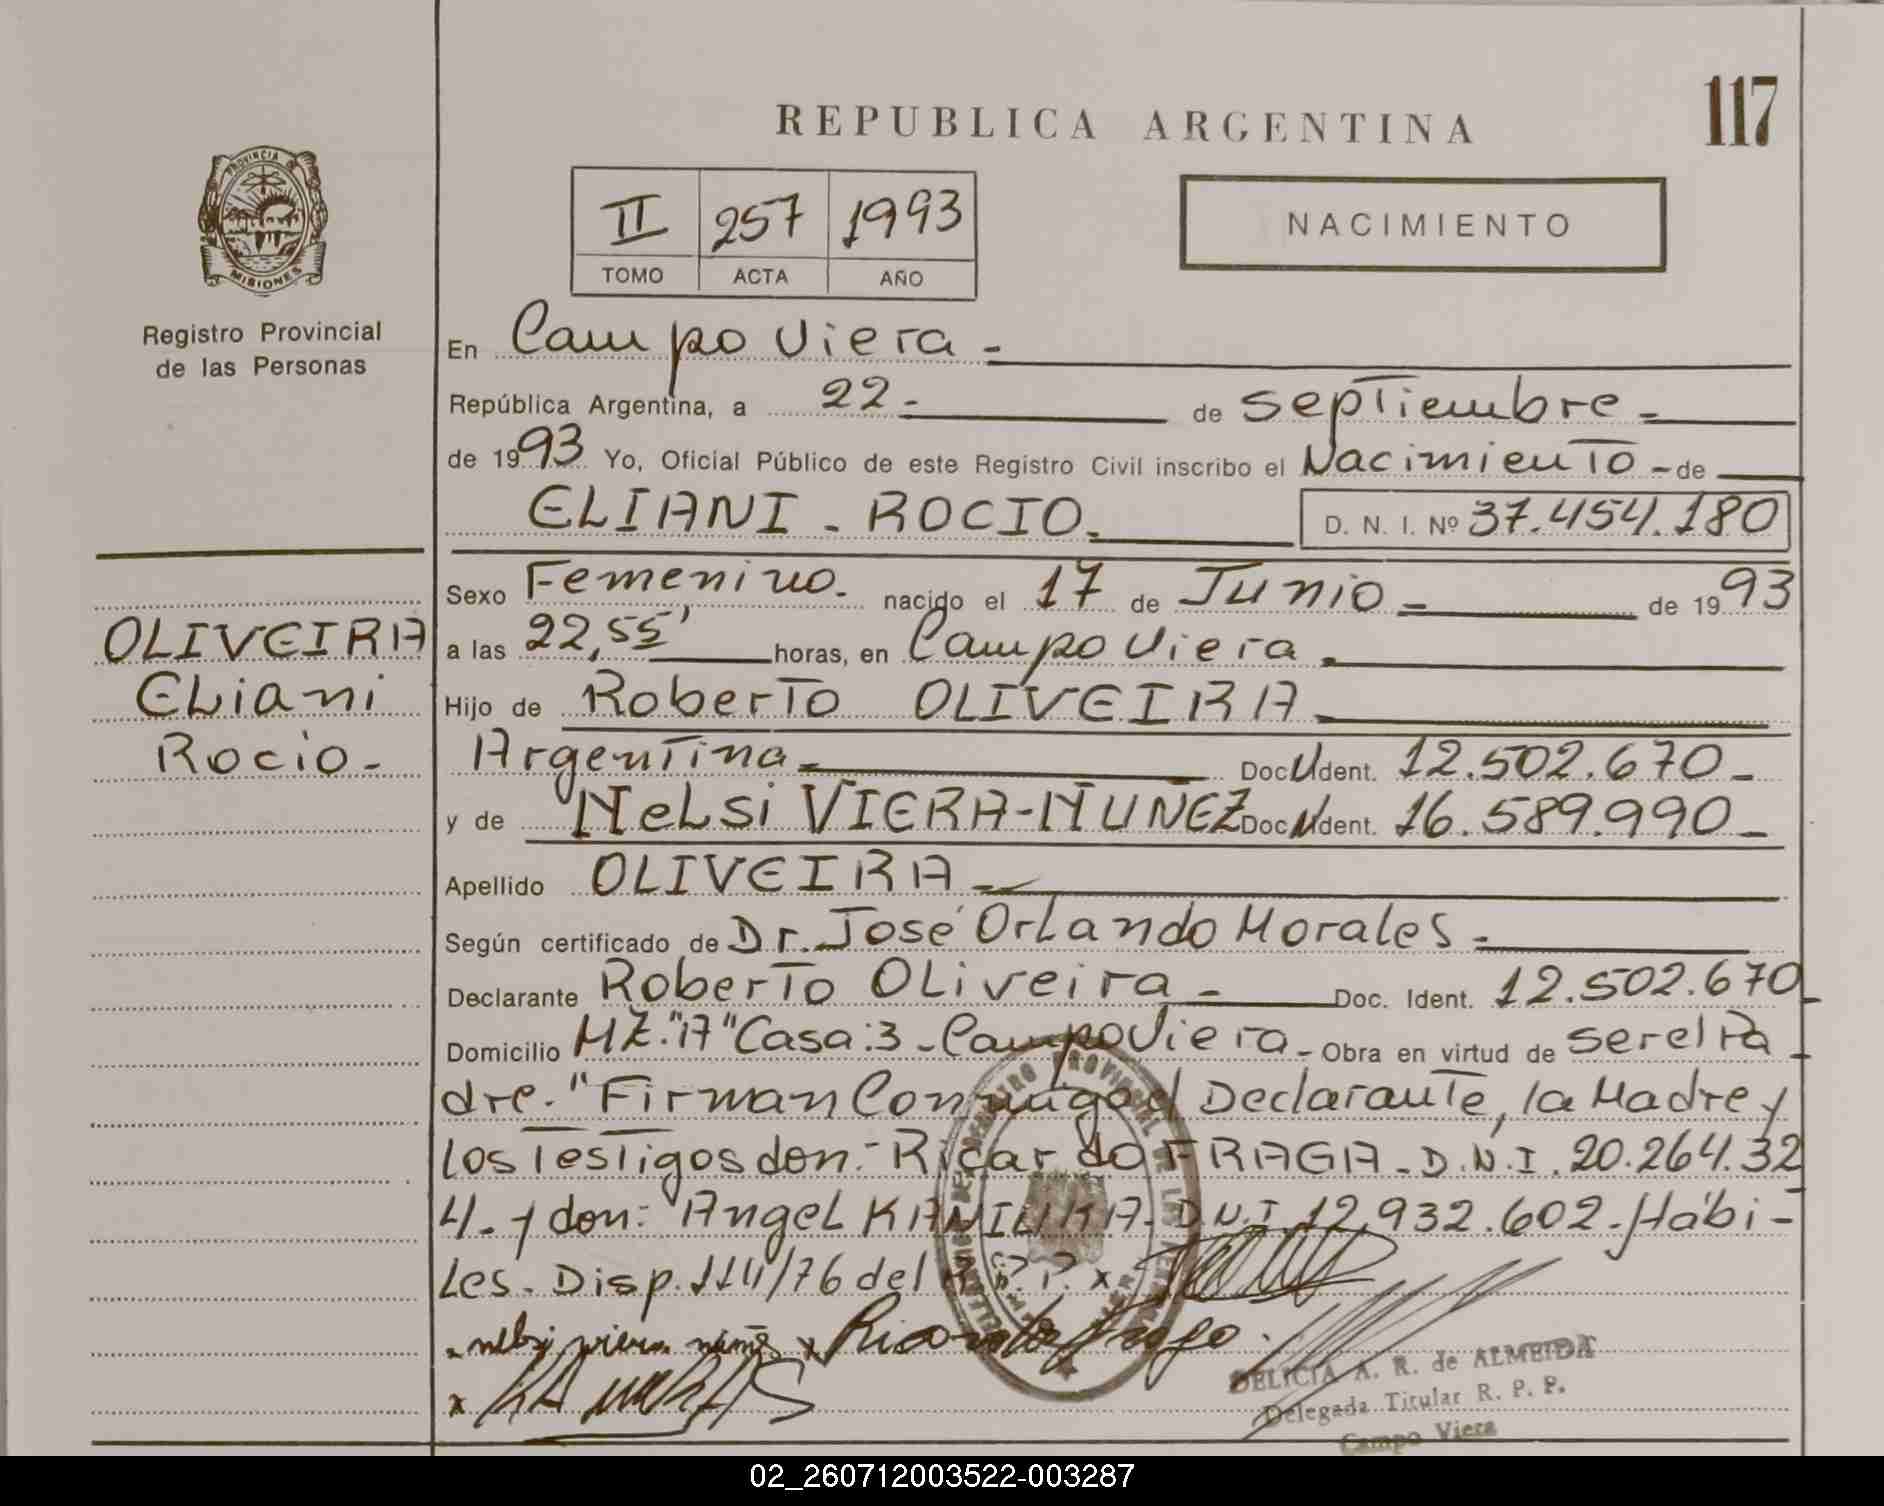 117
REPUBLICA ARGENTINA
PROVINCIA DE
MISIONES
Registro Provincial
de las Personas
II 257 1993
TOMO ACTA AÑO
NACIMIENTO
En Campo Viera -
República Argentina, a 22 - de septiembre -
de 1993 Yo, Oficial Público de este Registro Civil inscribo el Nacimiento - de
ELIANI - ROCIO - D. N. I. Nº 37.454.180
Sexo Femenino - nacido el 17 de Junio - de 1993
a las 22,55' horas, en Campo Viera -
Hijo de Roberto OLIVEIRA -
Argentina - Doc. Ident. 12.502.670 -
y de NeLsi VIERA-NUÑEZ Doc. Ident. 16.589.990 -
Apellido OLIVEIRA -
Según certificado de Dr. José Orlando Morales -
Declarante Roberto OLiveira - Doc. Ident. 12.502.670 -
Domicilio MZ."A" Casa:3 - Campo Viera - Obra en virtud de ser el Pa
dre." Firman Conmigo el Declarante, la Madre y
los Testigos don:- Ricardo FRAGA - D.N.I. 20.264.32
4. - y don: Angel KANILUKA - D.N.I 12.932.602 - Hábi -
Les. Disp. 114/76 del R.P.P. x
x
x
DELICIA A. R. de ALMEIDA
Delegada Titular R. P. P.
Campo Viera
OLIVEIRA
ELiani
Rocio -
02_260712003522-003287